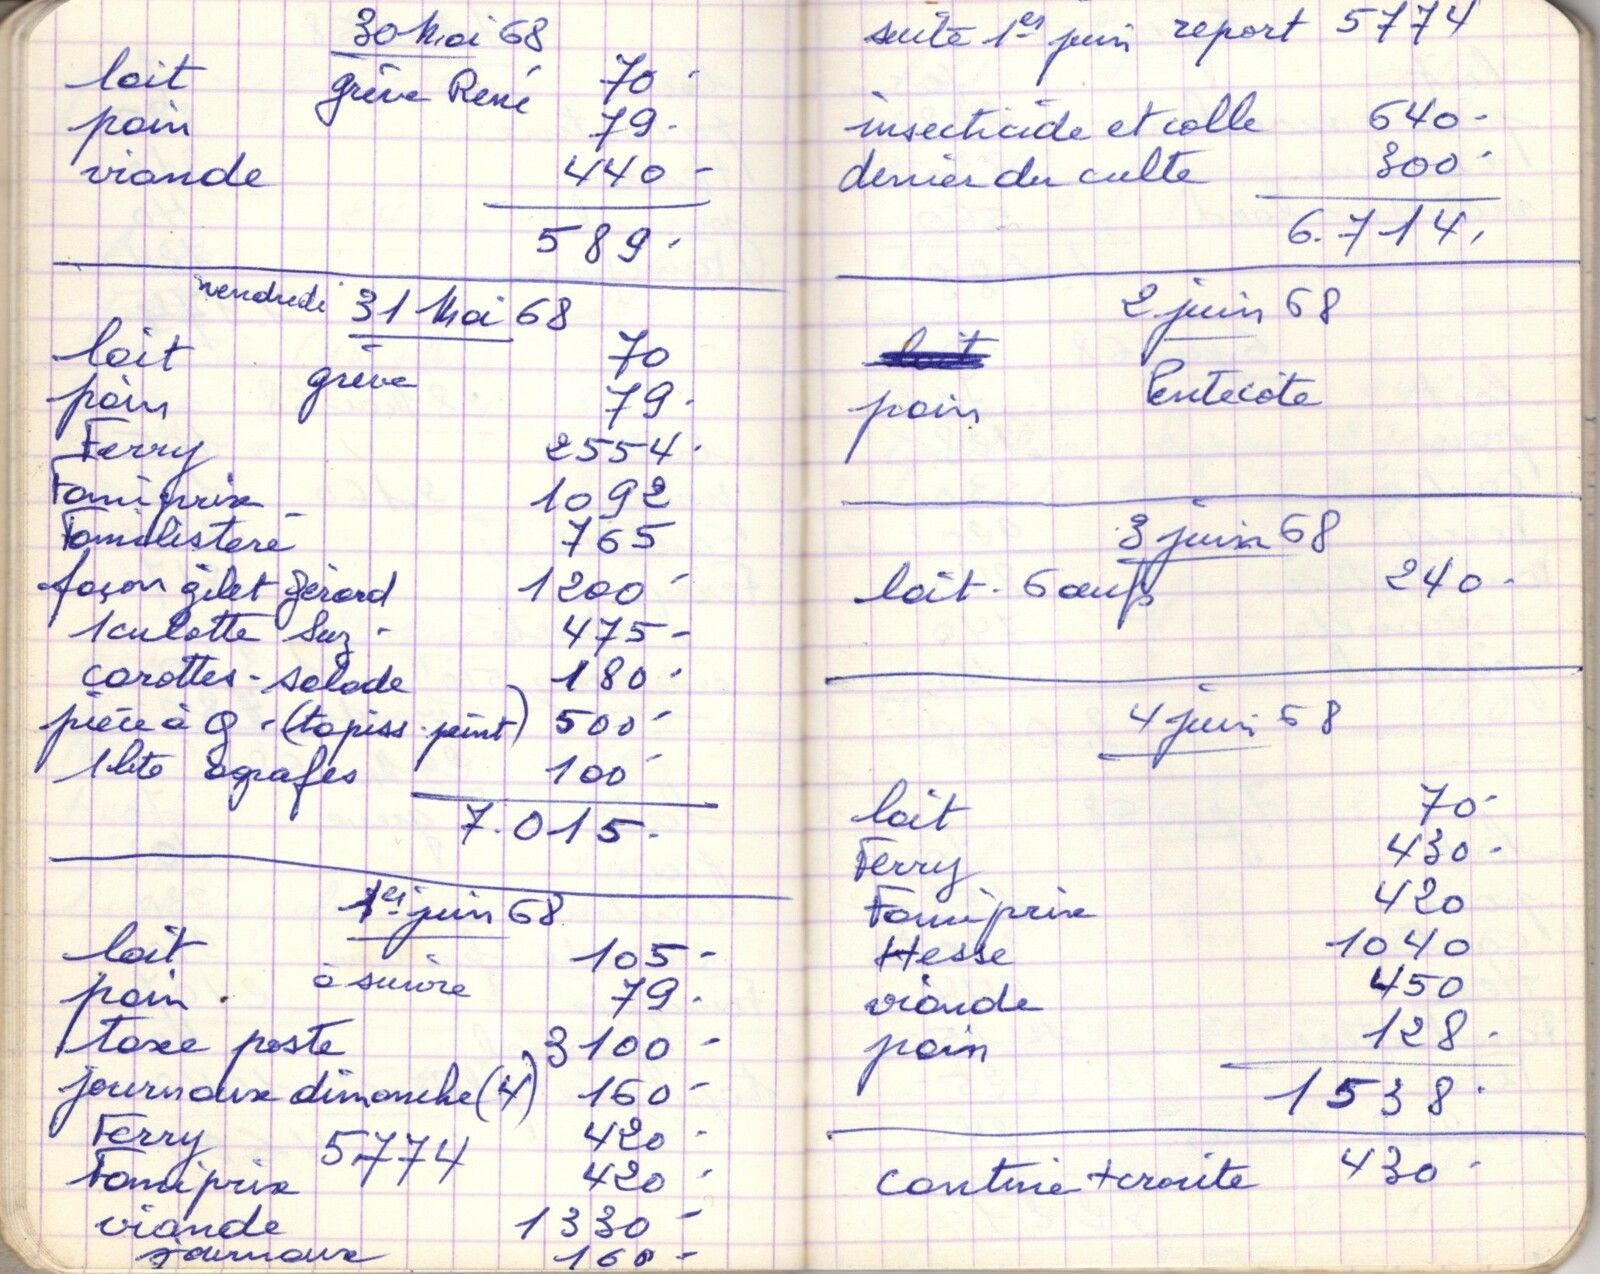 30 Mai 68
lait grève René 70 -
pain 79 -
viande 440 -
589 -
vendredi 31 Mai 68
lait 70
grève
pain 79 -
Ferry 2554 -
Famiprix 1092
Familistère 765
façon gilet Gérard 1200 -
1 culotte Suz - 475 -
carottes - salade 180 -
pièce à Q - (tapiss. peint) 500 -
1 bte agrafes 100 -
7.015 -
1er juin 68
lait 105 -
à suivre
pain 79 -
taxe poste 3100 -
journaux dimanche (4) 160 -
Ferry 5774 420 -
Famiprix 420 -
viande 1330 -
journaux 160 -
suite 1er juin report 5774
insecticide et colle 640 -
denier du culte 300 -
6.714,
2 juin 68
Pentecôte
pain
3 juin 68
lait - 6 œufs 240 -
4 juin 68
lait 70 -
Ferry 430 -
Famiprix 420
Hesse 1040
viande 450
pain 128 -
1538 -
cantine + croute 430 -